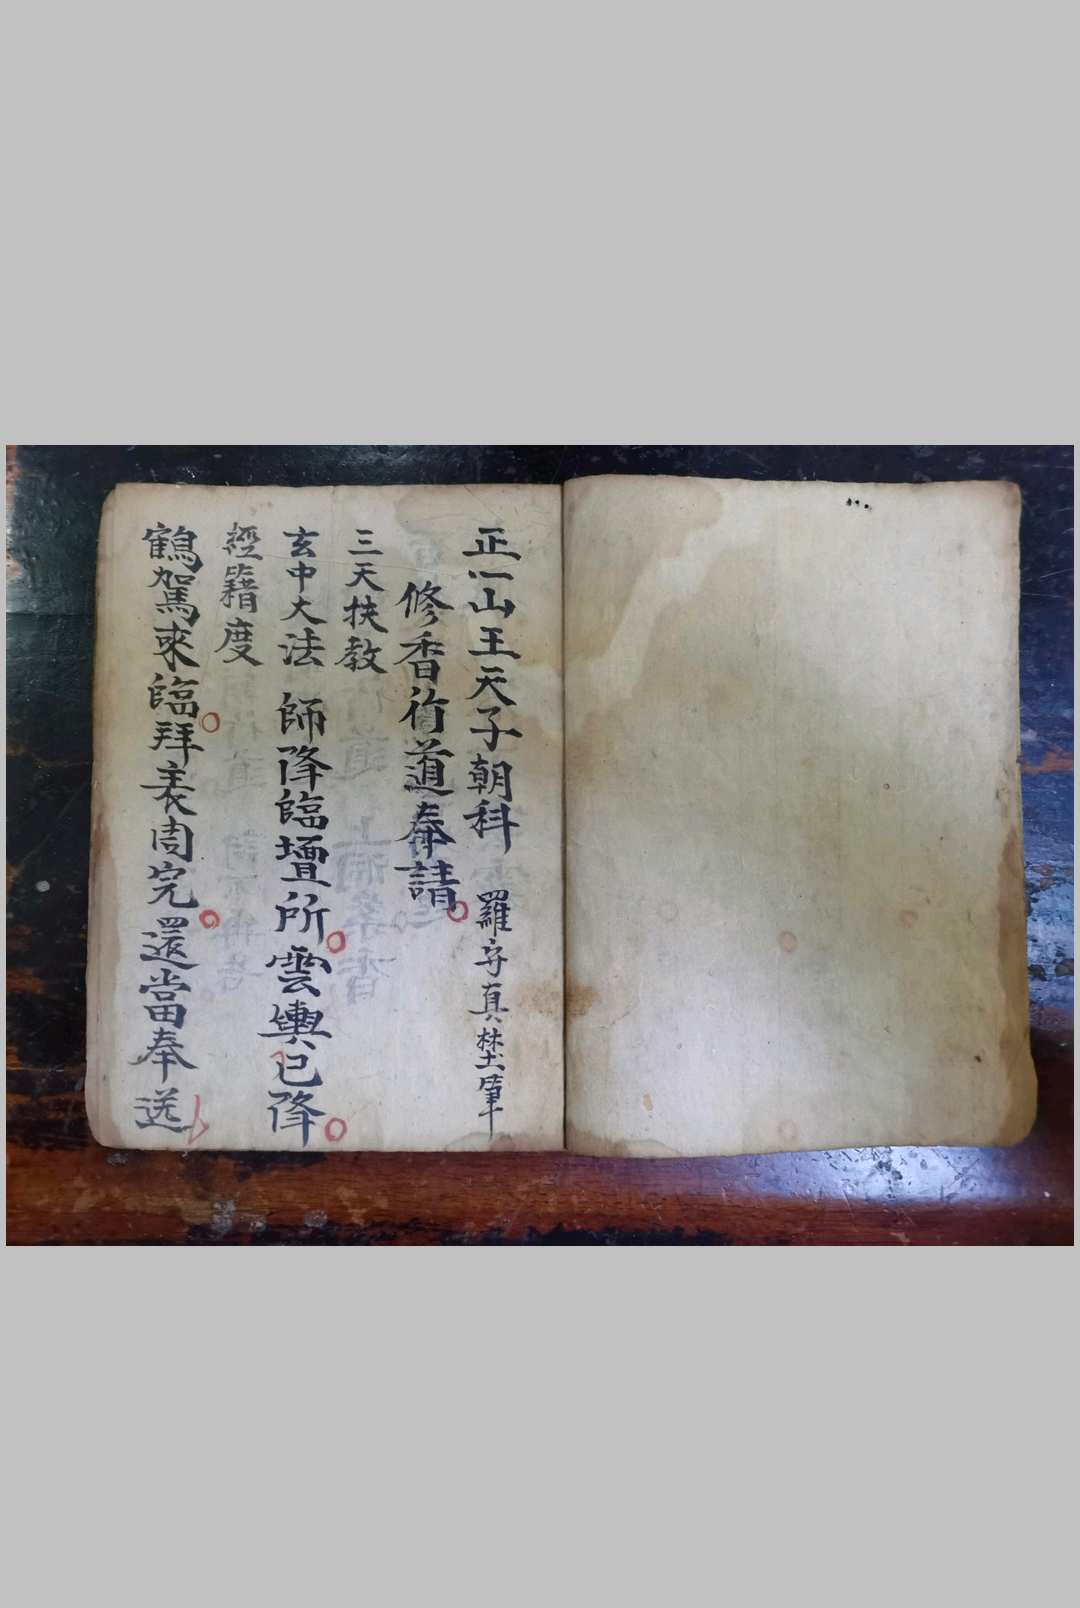 正一山王天子朝科 羅守真埜筆
修香行道奉請
三天扶教
玄中大法 師降臨壇所雲輿已降
經籍度
鶴駕來臨拜表周完還當奉送